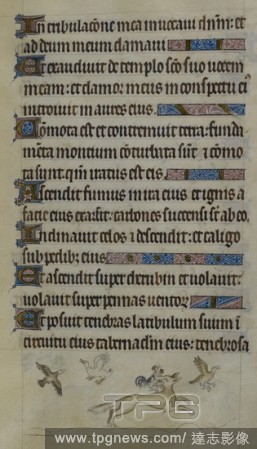 In tribulacōne mea invocavi dnm: et
ad deum meum clamavi
Et exaudivit de templo sc̄o suo vocem
meam: et clamor meus in conspectu ei
introivit in aures eius.
Commota est et contremuit terra: funda
mēta montium cōturbata sūt z cōmo
ta sunt qm̄ iratus est eis.
Ascendit fumus in ira eius et ignis a
facie eius exarsit: carbones succensi sr̄ ab eo.
Inclinavit celos z descendit: et caligo
sub pedib; eius
Et ascendit super cherubin et volavit:
volavit super pennas ventor
Et posuit tenebras latibulum suum ī
circuitu eius tabernaclm eius: tenebrosa
TPG
www.tpgnews.com / 達志影像